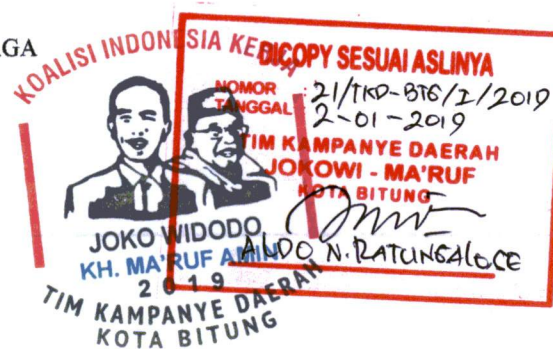 AGA
KOALISI INDONESIA KERJA
JOKO WIDODO
KH. MA'RUF AMIN
2019
TIM KAMPANYE DAERAH
KOTA BITUNG
DICOPY SESUAI ASLINYA
NOMOR : 21/TKD-BTG/I/2019
TANGGAL : 2-01-2019
TIM KAMPANYE DAERAH
JOKOWI - MA'RUF
KOTA BITUNG
ALDO N. RATUNGALOCE